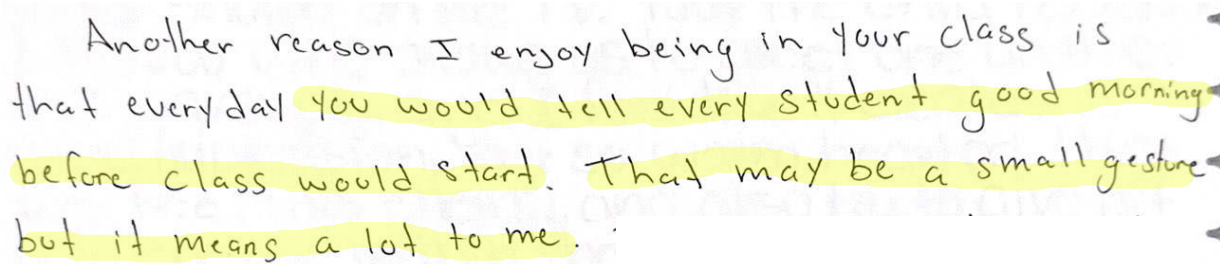 Another reason I enjoy being in your class is
that everyday you would tell every student good morning
before class would start. That may be a small gesture
but it means a lot to me.